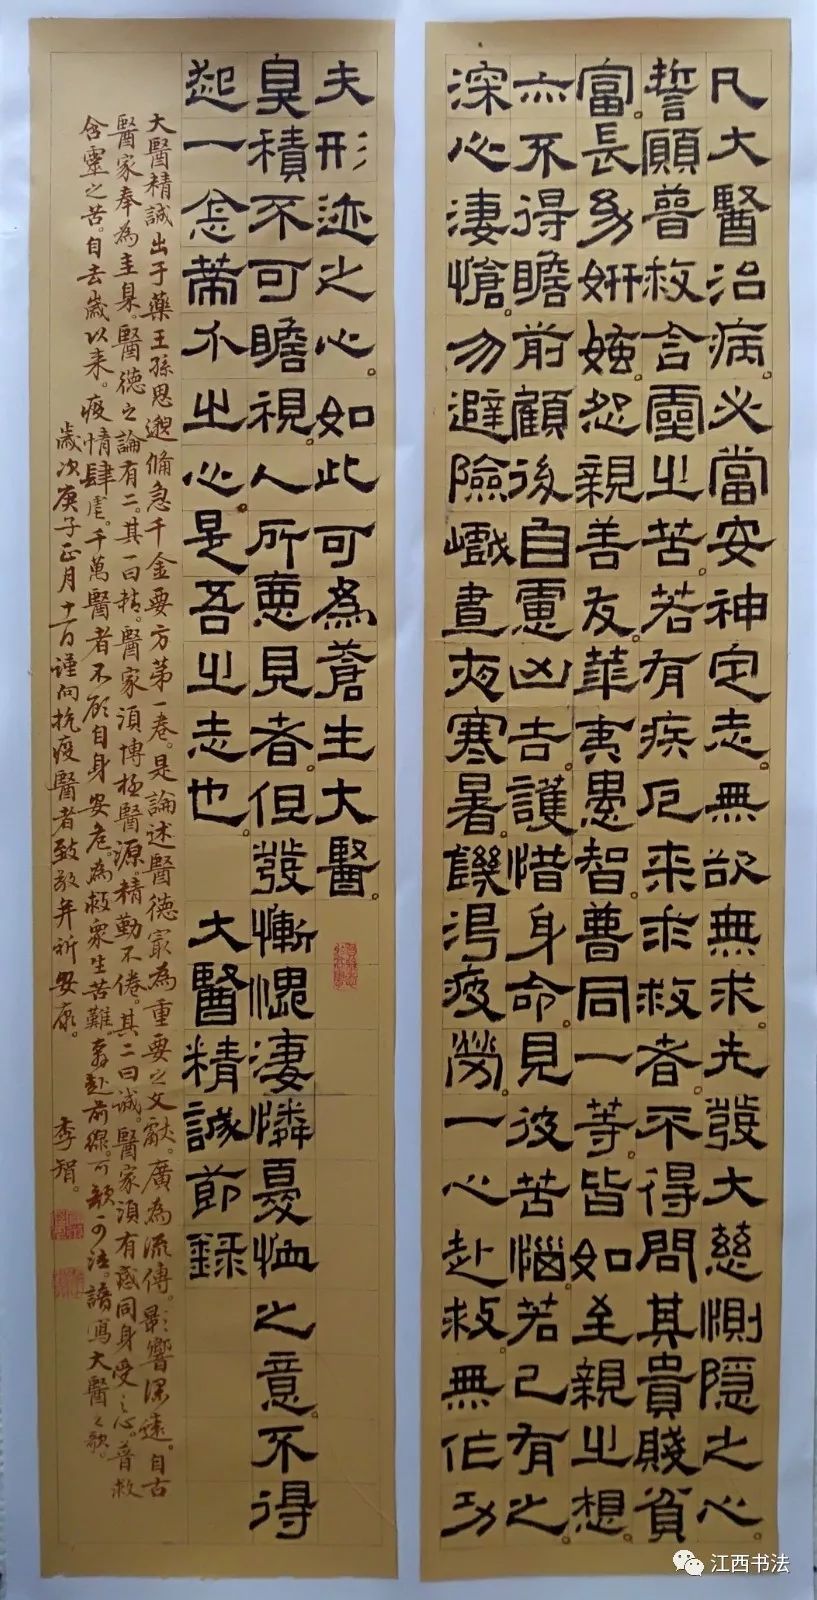 凡大醫治病。必當安神定志。無欲無求。先發大慈惻隱之心。
誓願普救含靈之苦。若有疾厄来求救者。不得問其貴賤貧
富。長幼妍媸。怨親善友。華夷愚智。普同一等。皆如至親之想。
亦不得瞻前顧後。自慮凶吉。護惜身命。見彼苦惱。若己有之。
深心淒愴。勿避險巇。晝夜寒暑。饑渴疲勞。一心赴救。無作功
夫形迹之心。如此可為蒼生大醫。
臭積不可瞻視。人所惡見者。但發慚愧淒憐憂恤之意。不得
起一念蒂介之心。是吾之志也。 大醫精誠節録
大醫精誠出于藥王孫思邈備急千金要方第一卷。是論述醫德最為重要之文獻。廣為流傳。影響深遠。自古
醫家奉為圭臬。醫德之論有二。其一曰精。醫家須博極醫源。精勤不倦。其二曰誠。醫家須有感同身受之心。普救
含靈之苦。自去歲以来。疫情肆虐。千萬醫者不顧自身安危。為救衆生苦難。奔赴前線。可歌可泣。謹寫大醫之歌。
歲次庚子正月十一日謹向抗疫醫者致敬并祈安康。 李智。
江西书法